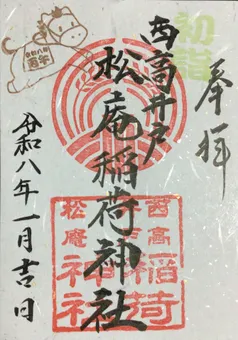 初詣
奉拝
西高井戸
松庵稲荷神社
令和八年一月吉日
西高
井戸
稲荷
松庵
神社